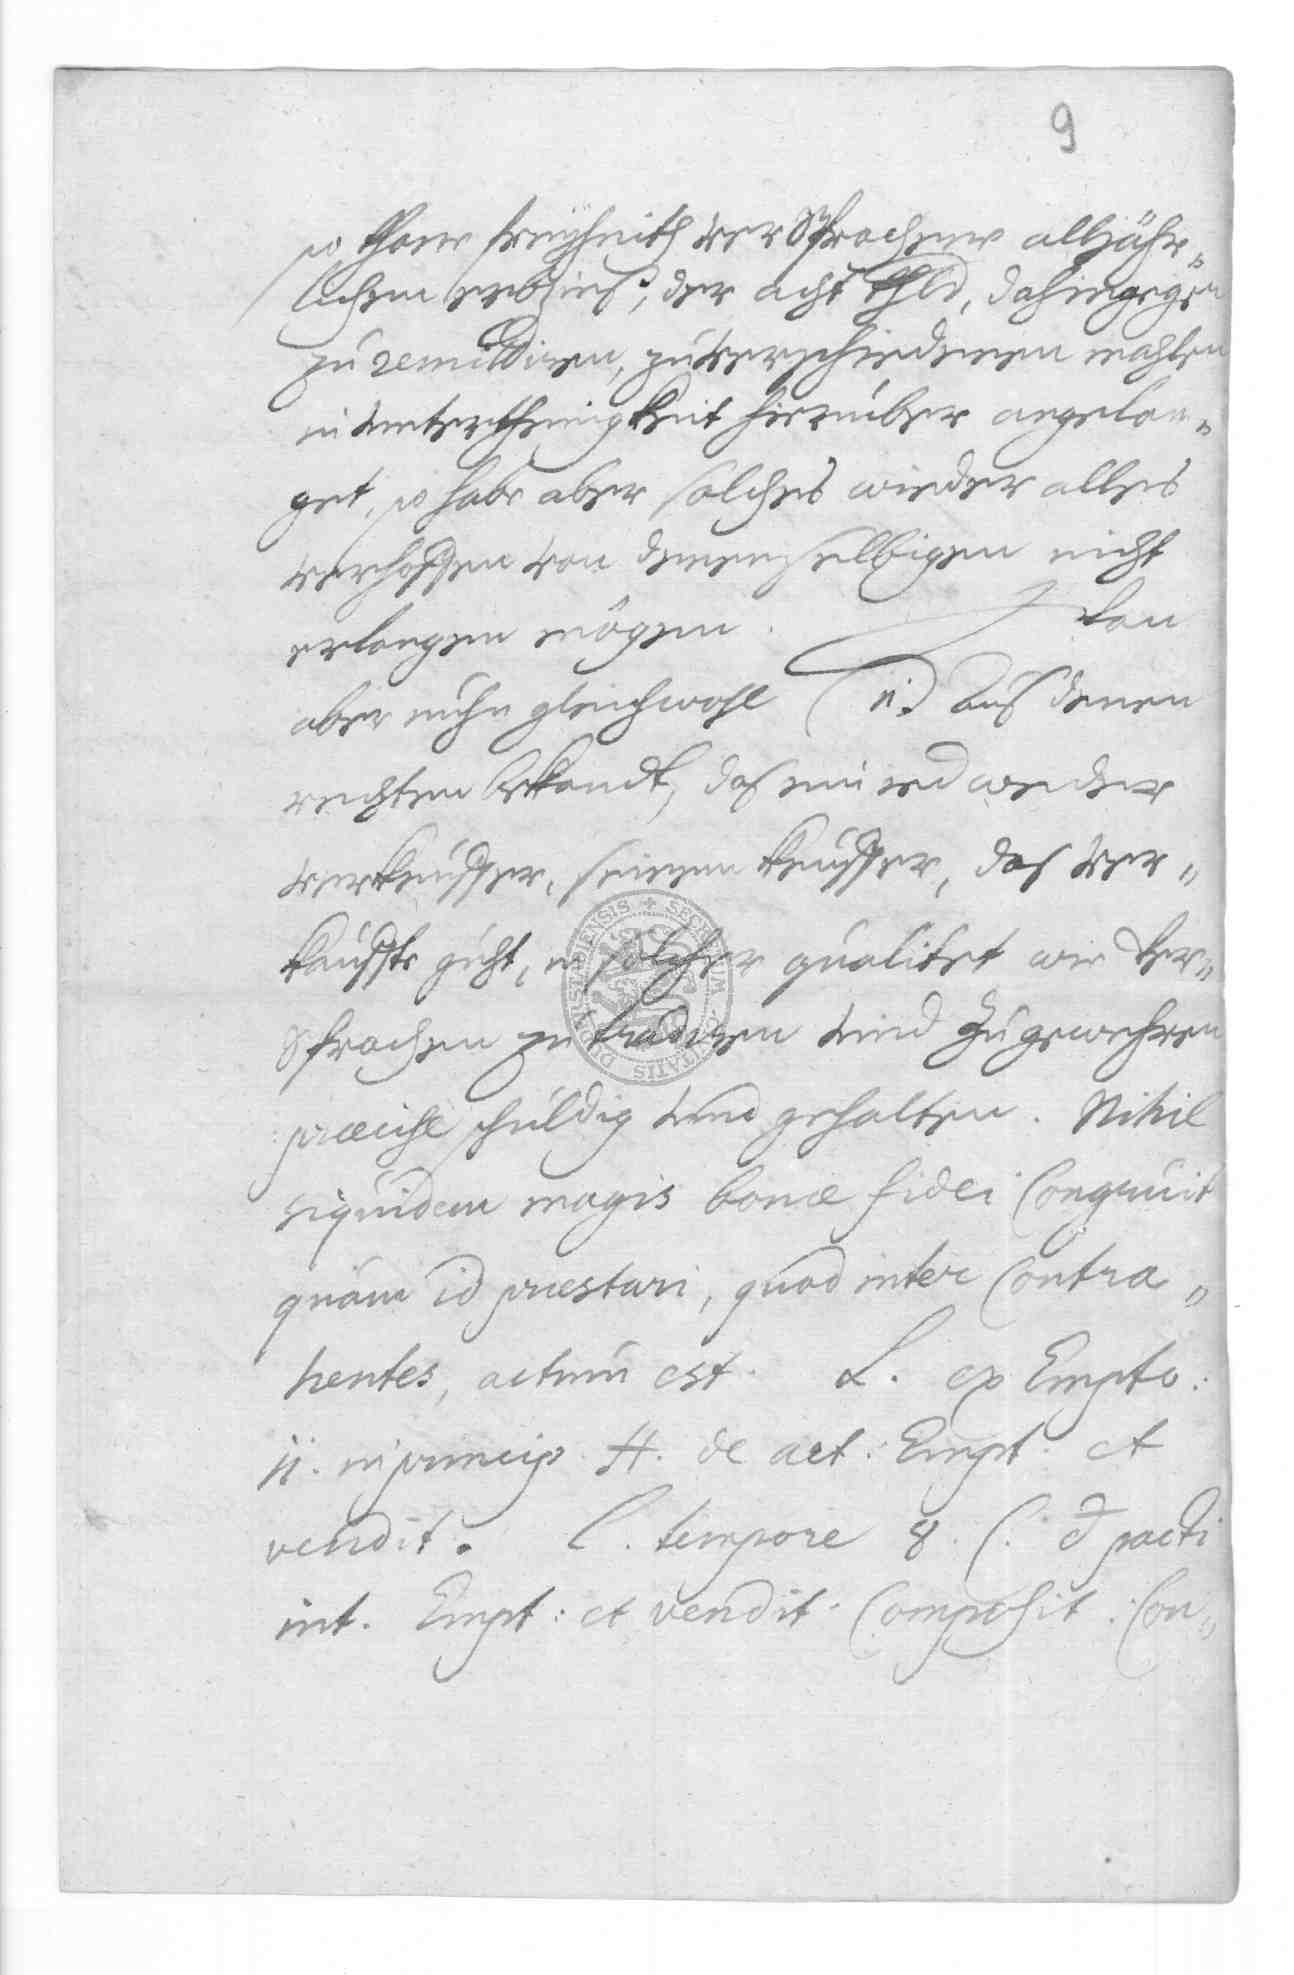 9
so thane freyheith versprochene alljähr„
lichen erbzins, der acht thld, dahingegen
zu remittiren, zu verschiedenen mahlen
in unterthenigkeit hierüber angelan„
get, so habe aber solches wieder alles
verhoffen von denenselbigen nicht
erlangen mögen. Wan
aber nuhn gleichwohl (n.) aus denen
rechten bekandt, das ein iedweder
verkeuffer, seinem keuffer, das ver„
kauffte guht, in solcher qualitet wie ver„
sprochen zu tradiren und zu gewehren
præcise schuldig und gehalten. Nihil
siquidem magis bonæ fidei Congruit
quàm id præstari, quod inter Contra„
hentes, actum est. L. ex Empto:
ii. in princip. ff. de act: Empt. et
vendit. l. tempore 8. C. d pacti
int. Empt: et vendit. Composit. Con„
SECRETUM CIVITATIS